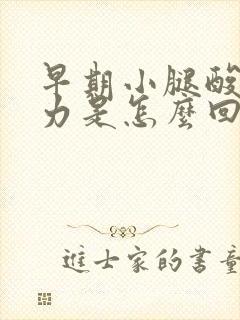 早期小腿酸
力是怎麼回
進士家的書童